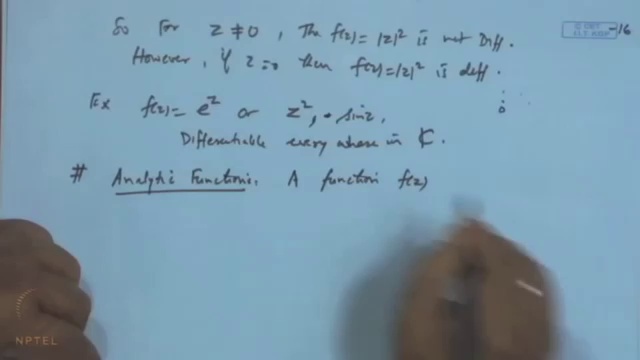 So for z ≠ 0, the f(z) = |z|² is not Diff.
However, if z = 0 then f(z) = |z|² is diff.
Ex f(z) = e^z or z², sin z,
Differentiable every where in ℂ.
# Analytic Function. A function f(z)
-16
NPTEL